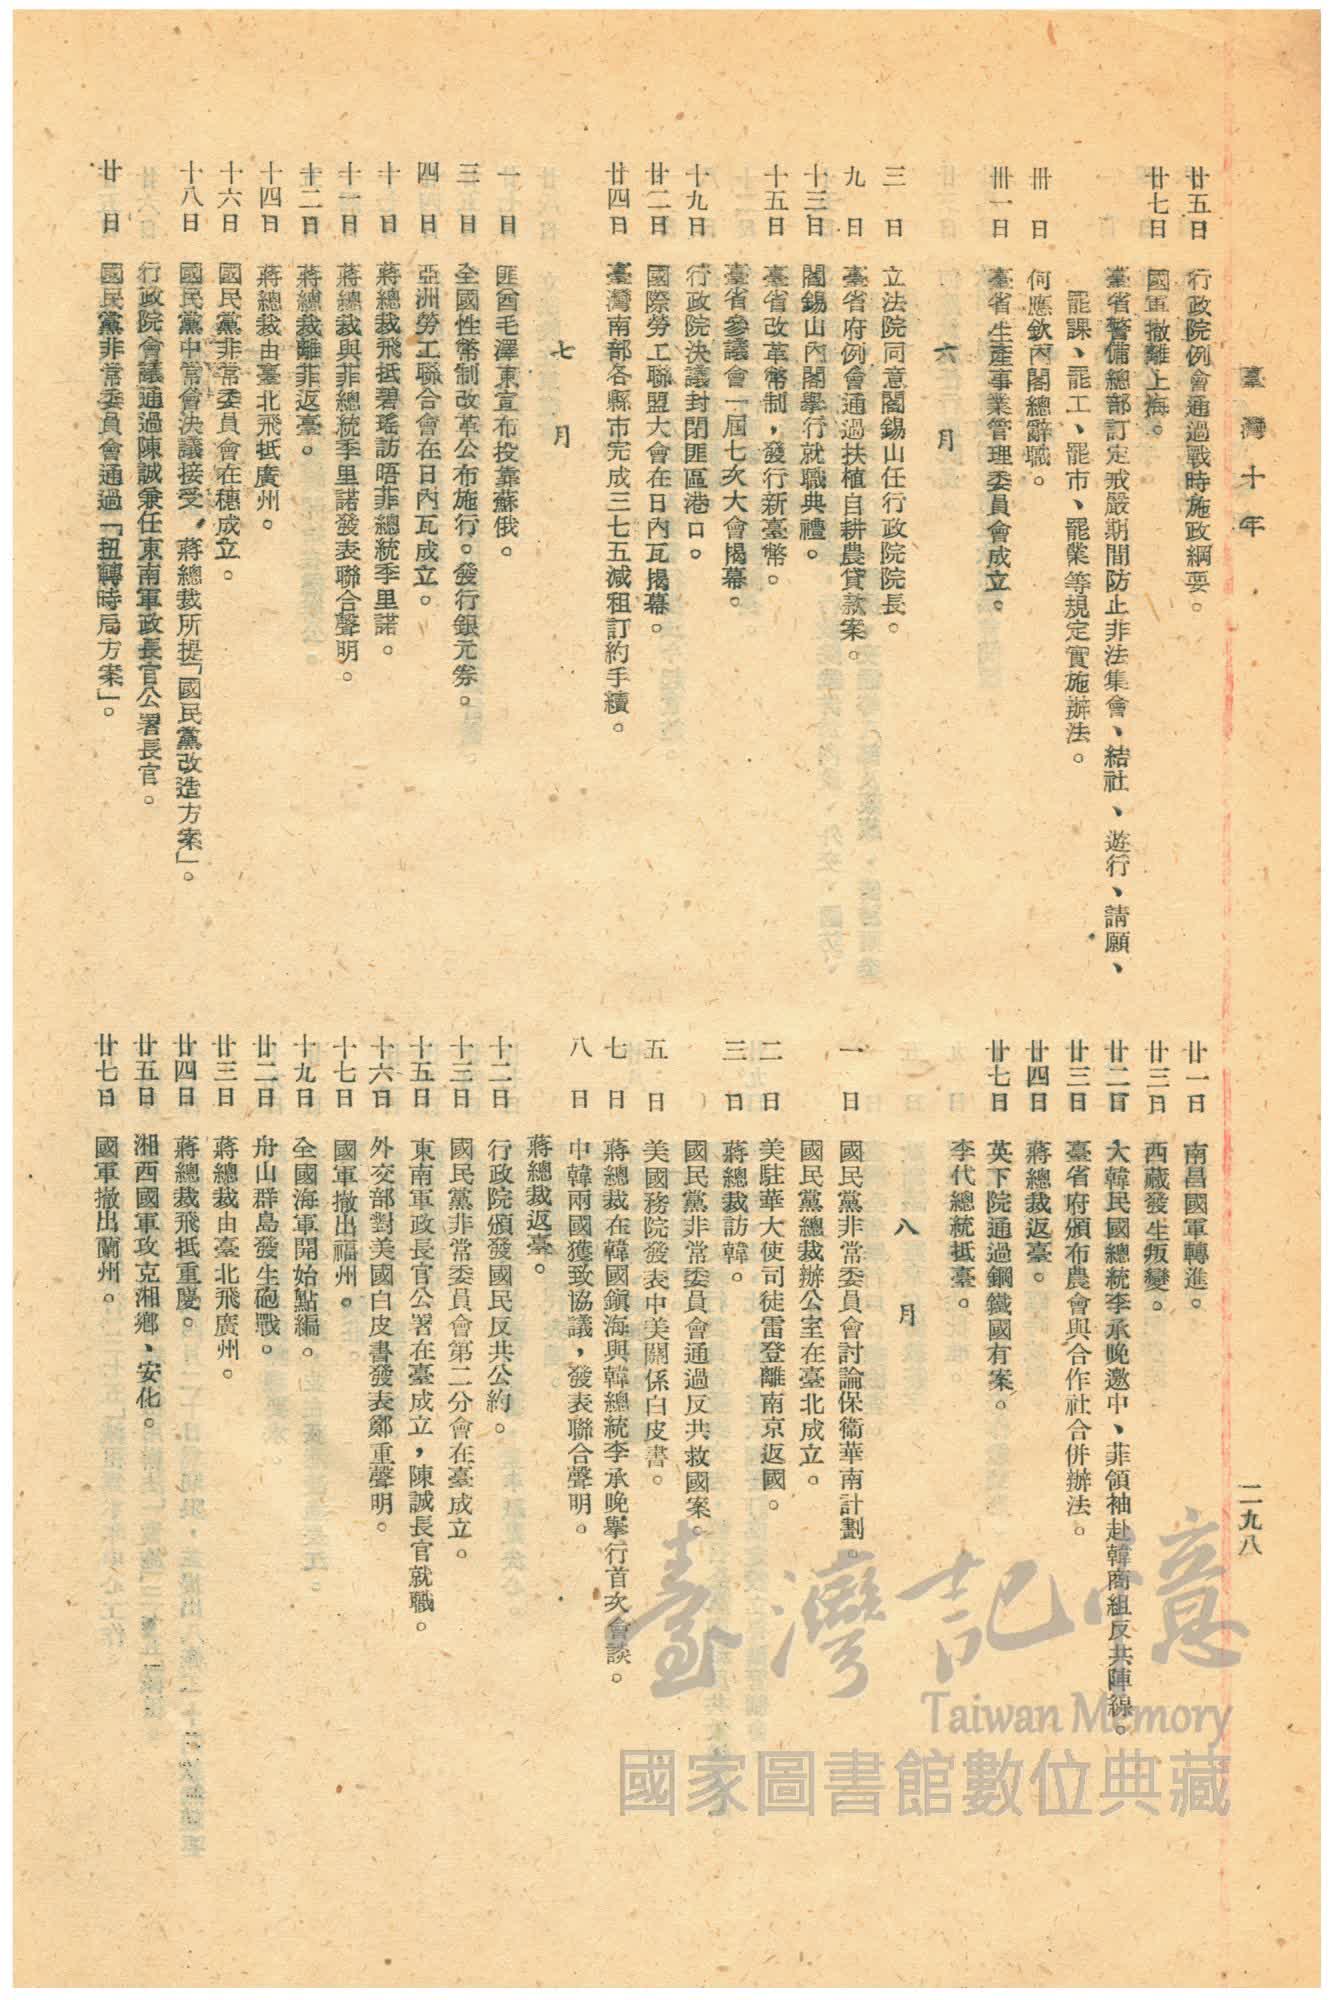 臺灣十年
二九八
廿五日 行政院例會通過戰時施政綱要。
廿七日 國軍撤離上海。
臺省警備總部訂定戒嚴期間防止非法集會、結社、遊行、請願、
罷課、罷工、罷市、罷業等規定實施辦法。
卅日 何應欽內閣總辭職。
卅一日 臺省生產事業管理委員會成立。
六月
三日 立法院同意閻錫山任行政院院長。
九日 臺省府例會通過扶植自耕農貸款案。
十三日 閻錫山內閣舉行就職典禮。
十五日 臺省改革幣制，發行新臺幣。
臺省參議會一屆七次大會揭幕。
十九日 行政院決議封閉匪區港口。
廿二日 國際勞工聯盟大會在日內瓦揭幕。
廿四日 臺灣南部各縣市完成三七五減租訂約手續。
七月
一日 匪酋毛澤東宣布投靠蘇俄。
三日 全國性幣制改革公布施行。發行銀元券。
四日 亞洲勞工聯合會在日內瓦成立。
十日 蔣總裁飛抵碧瑤訪晤菲總統季里諾。
十一日 蔣總裁與菲總統季里諾發表聯合聲明。
十二日 蔣總裁離菲返臺。
十四日 蔣總裁由臺北飛抵廣州。
十六日 國民黨非常委員會在穗成立。
十八日 國民黨中常會決議接受，蔣總裁所提「國民黨改造方案」。
行政院會議通過陳誠兼任東南軍政長官公署長官。
廿日 國民黨非常委員會通過「扭轉時局方案」。
廿一日 南昌國軍轉進。
廿三日 西藏發生叛變。
廿二日 大韓民國總統李承晚邀中、菲領袖赴韓商組反共陣線。
廿三日 臺省府頒布農會與合作社合併辦法。
廿四日 蔣總裁返臺。
廿七日 英下院通過鋼鐵國有案。
李代總統抵臺。
八月
一日 國民黨非常委員會討論保衞華南計劃。
國民黨總裁辦公室在臺北成立。
二日 美駐華大使司徒雷登離南京返國。
三日 蔣總裁訪韓。
國民黨非常委員會通過反共救國案。
五日 美國務院發表中美關係白皮書。
七日 蔣總裁在韓國鎭海與韓總統李承晚舉行首次會談。
八日 中韓兩國獲致協議，發表聯合聲明。
蔣總裁返臺。
十二日 行政院頒發國民反共公約。
十三日 國民黨非常委員會第二分會在臺成立。
十五日 東南軍政長官公署在臺成立，陳誠長官就職。
十六日 外交部對美國白皮書發表鄭重聲明。
十七日 國軍撤出福州。
十九日 全國海軍開始點編。
廿二日 舟山群島發生砲戰。
廿三日 蔣總裁由臺北飛廣州。
廿四日 蔣總裁飛抵重慶。
廿五日 湘西國軍攻克湘鄉、安化。
廿七日 國軍撤出蘭州。
臺灣記憶
Taiwan Memory
國家圖書館數位典藏